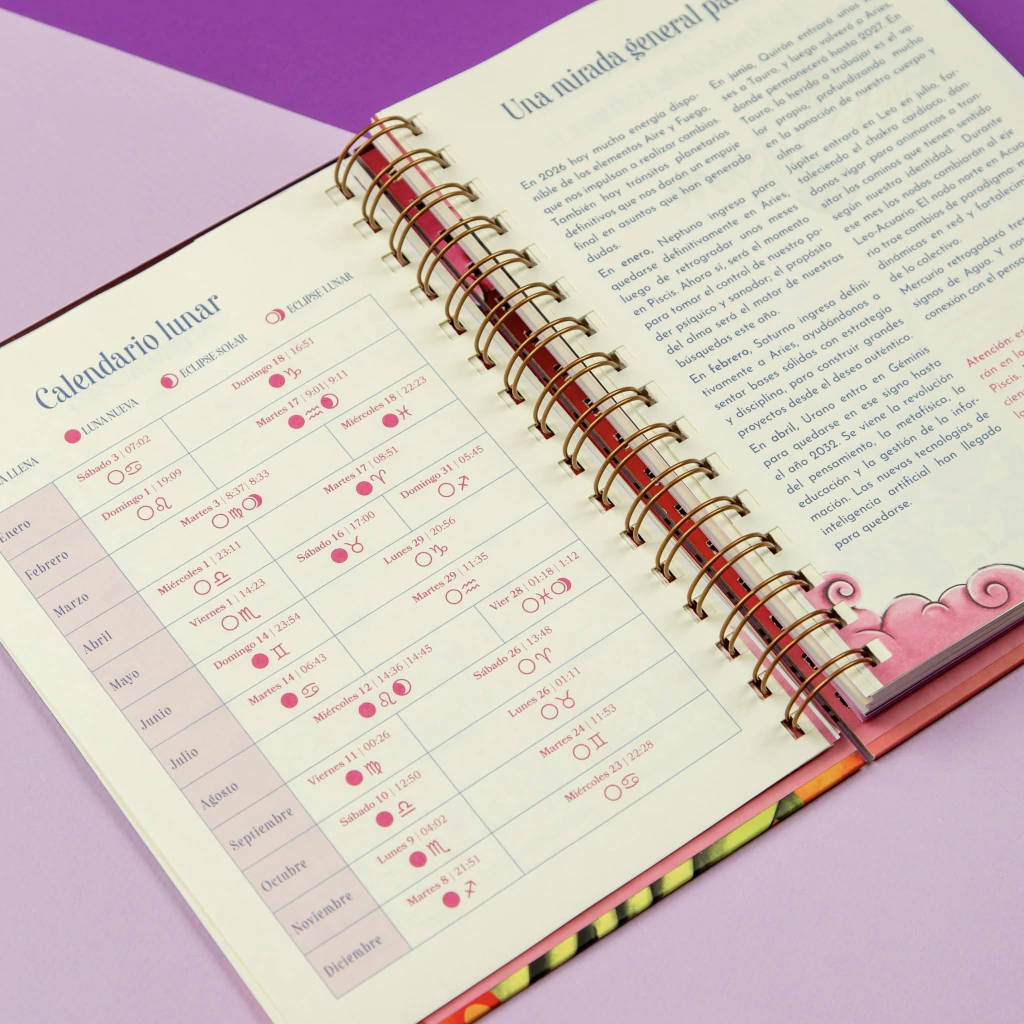 Calendario lunar
LLENA
LUNA NUEVA
ECLIPSE SOLAR
ECLIPSE LUNAR
Enero
Sábado 3 | 07:02
Domingo 18 | 16:51
Febrero
Domingo 1 | 19:09
Martes 17 | 9:01| 9:11
Marzo
Martes 3 | 8:37| 8:33
Miércoles 18 | 22:23
Abril
Miércoles 1 | 23:11
Martes 17 | 08:51
Mayo
Viernes 1 | 14:23
Sábado 16 | 17:00
Domingo 31 | 05:45
Junio
Domingo 14 | 23:54
Lunes 29 | 20:56
Julio
Martes 14 | 06:43
Martes 29 | 11:35
Agosto
Miércoles 12 | 14:36 |14:45
Vier 28 | 01:18 | 1:12
Septiembre
Viernes 11 | 00:26
Sábado 26 | 13:48
Octubre
Sábado 10 | 12:50
Lunes 26 | 01:11
Noviembre
Lunes 9 | 04:02
Martes 24 | 11:53
Diciembre
Martes 8 | 21:51
Miércoles 23 | 22:28
Una mirada general
En 2026 hay mucha energía dispo-
nible de los elementos Aire y Fuego,
que nos impulsan a realizar cambios.
También hay tránsitos planetarios
definitivos que nos darán un empuje
final en asuntos que han generado
dudas.
En enero, Neptuno ingresa para
quedarse definitivamente en Aries,
luego de retrogradar unos meses
en Piscis. Ahora sí, será el momento
para tomar el control de nuestro po-
der psíquico y sanador, el propósito
del alma será el motor de nuestras
búsquedas este año.
En febrero, Saturno ingresa defini-
tivamente a Aries, ayudándonos a
sentar bases sólidas con estrategia
y disciplina, para construir grandes
proyectos desde el deseo auténtico.
En abril, Urano entra en Géminis
para quedarse en ese signo hasta
el año 2032. Se viene la revolución
del pensamiento, la metafísica, la
educación y la gestión de la infor-
mación. Las nuevas tecnologías de
inteligencia artificial han llegado
para quedarse.
En junio, Quirón entrará unos
ses a Tauro, y luego volverá a Aries,
donde permanecerá hasta 2027. En
Tauro, lo herido a trabajar es el va-
lor propio, profundizando mucho
en la sanación de nuestro cuerpo y
alma.
Júpiter entrará en Leo en julio, for-
taleciendo el chakra cardíaco, dán-
donos vigor para animarnos a tran-
sitar los caminos que tienen sentido
según nuestra identidad. Durante
ese mes los nodos cambiarán al eje
Leo-Acuario. El nodo norte en Acua
rio trae cambios de paradigma
dinámicas en red y fortalecim
de lo colectivo.
Mercurio retrogradará tre
signos de Agua. Y nos
conexión con el pensa
Atención: es
rán en lo
Piscis,
cien